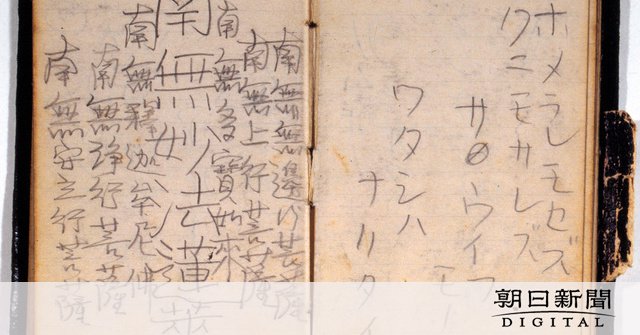 ホメラレモセズ
クニモサレズ
サウイフ
モノニ
ワタシハ
ナリタイ
南無無辺行菩薩
南無上行菩薩
南無多寳如来
南無妙法蓮華経
南無釈迦牟尼佛
南無浄行菩薩
南無安立行菩薩
朝日新聞
DIGITAL